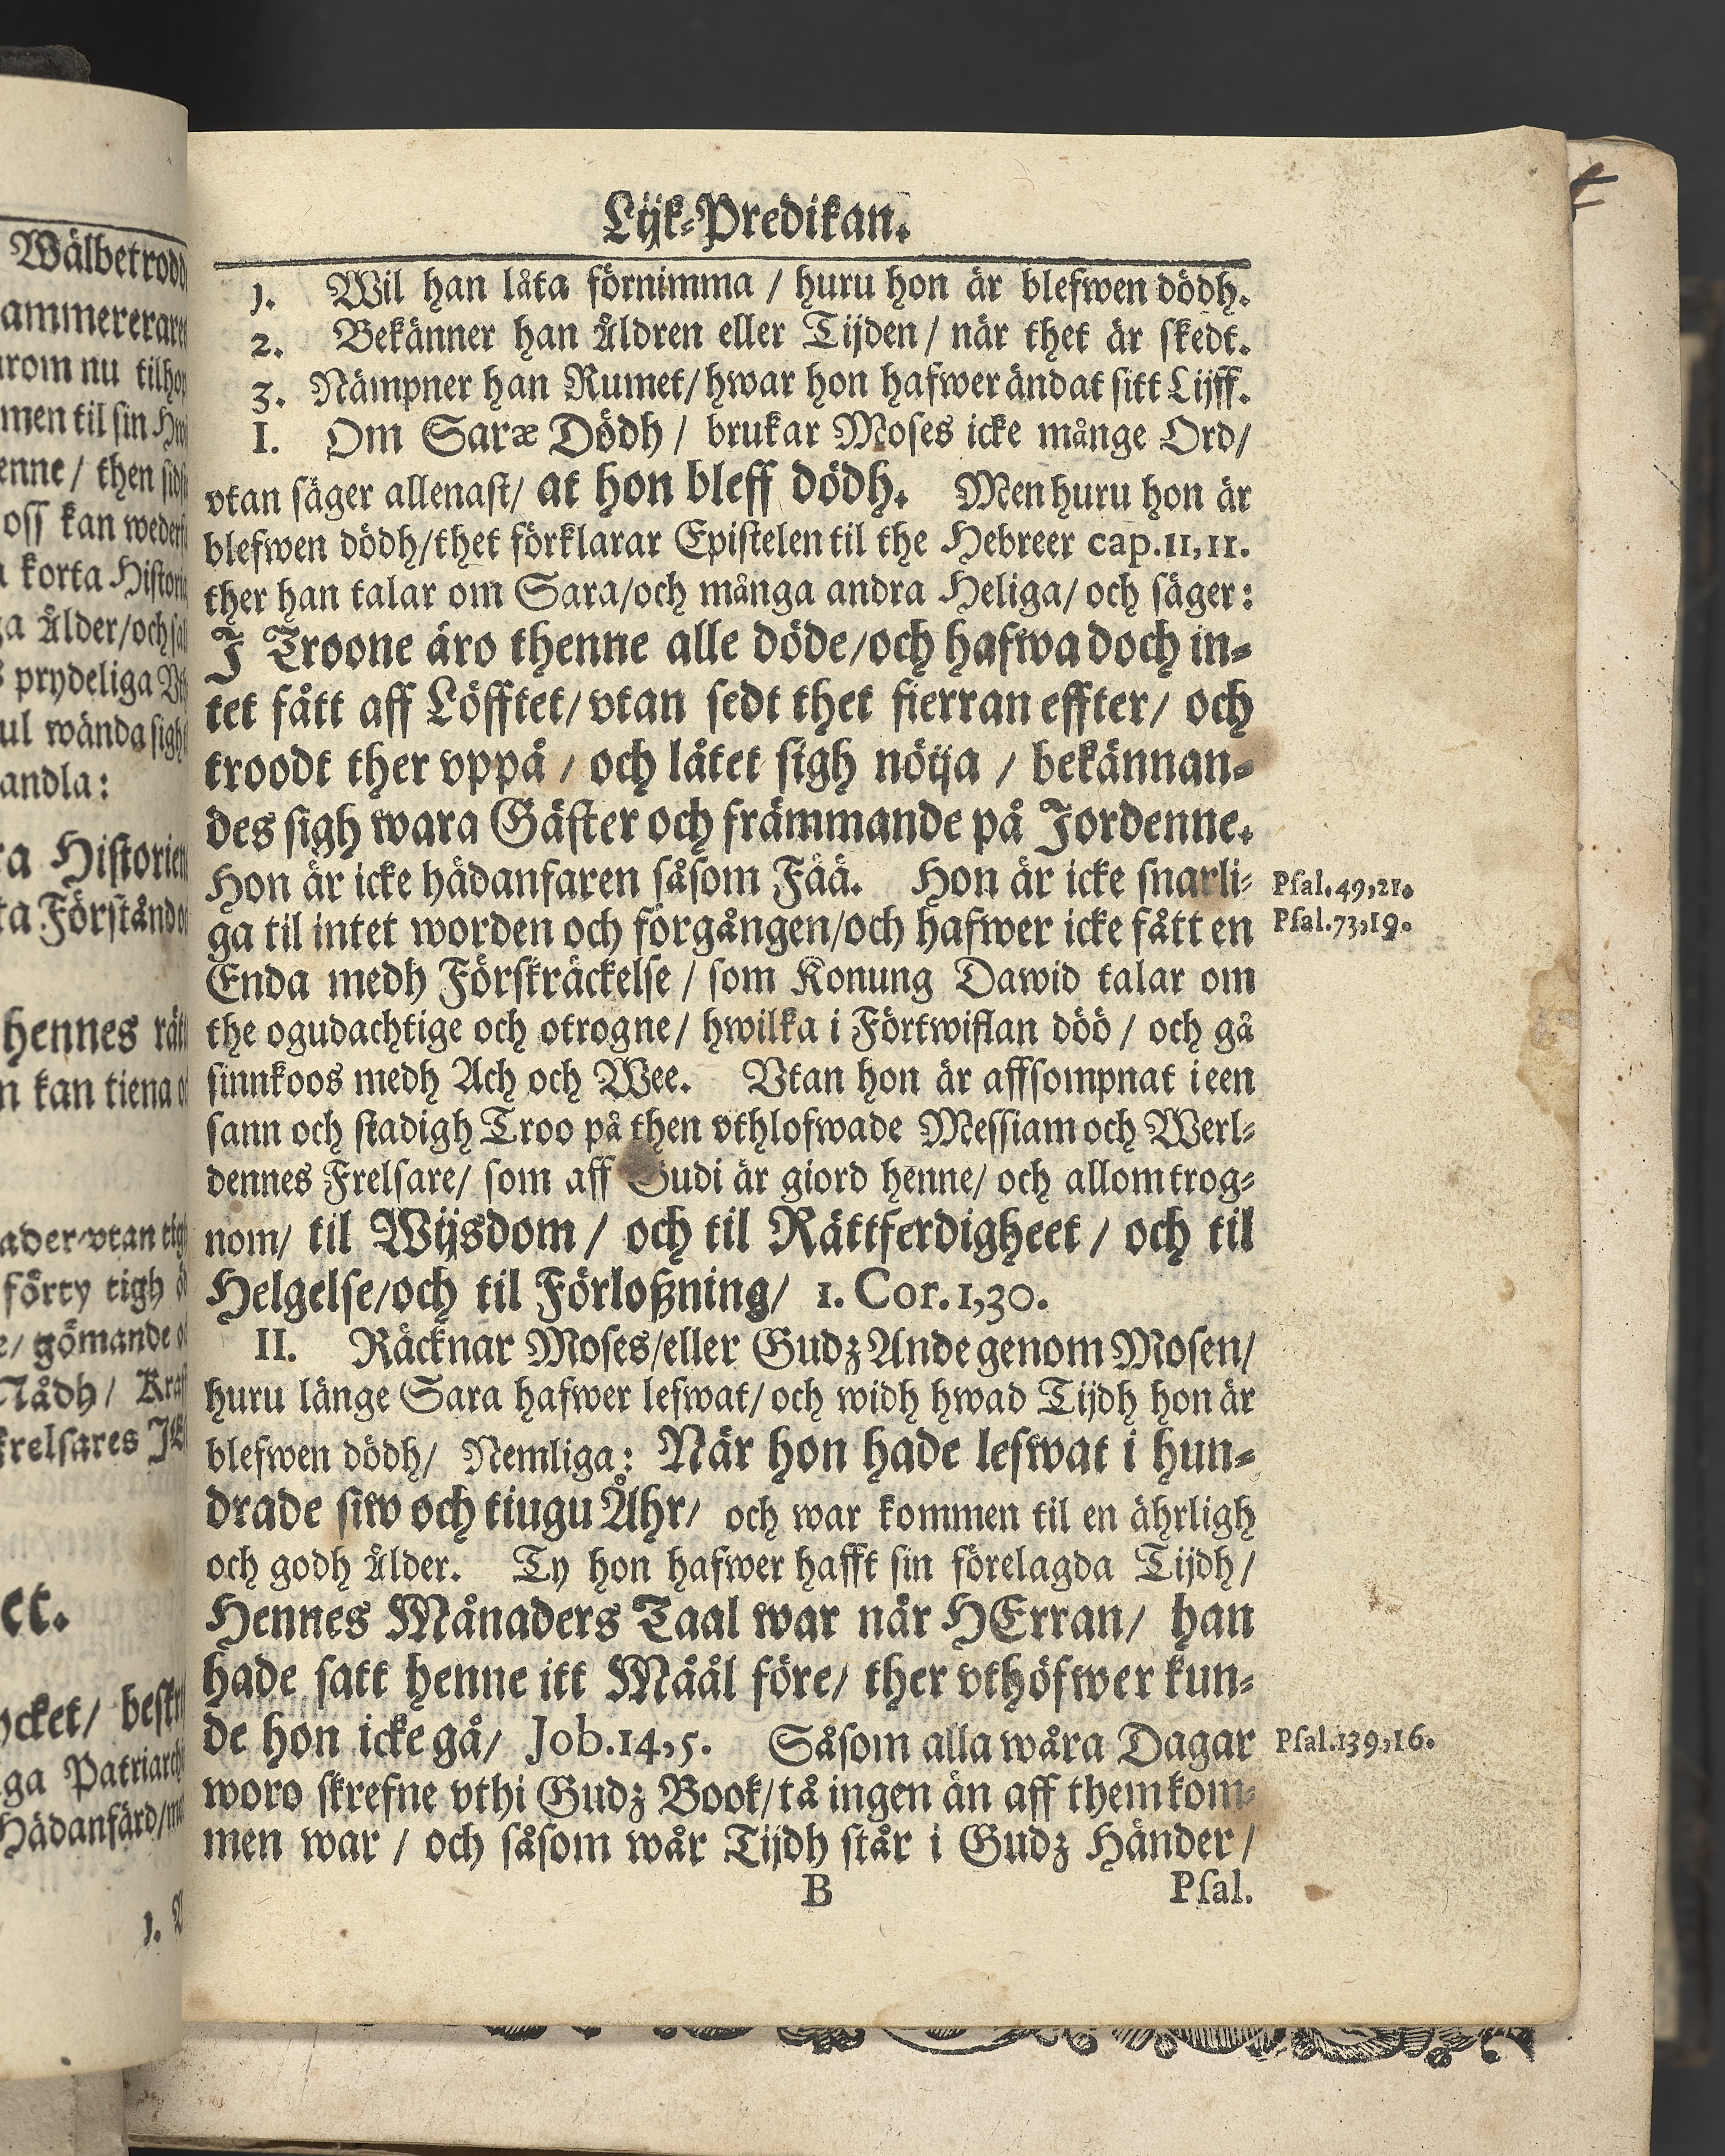 Lijk-Predikan.
1. Wil han låta förnimma / huru hon är blefwen dödh.
2. Bekänner han Åldren eller Tijden / när thet är skedt.
3. Nämpner han Rumet/hwar hon hafwer ändat sitt Lijff.
I. Om Saræ Dödh / brukar Moses icke månge Ord/
vtan säger allenast/ at hon bleff dödh. Men huru hon är
blefwen dödh/thet förklarar Epistelen til the Hebreer cap.11,11.
ther han talar om Sara/och många andra Heliga/ och säger:
J Troone äro thenne alle döde/och hafwa doch in-
tet fått aff Löfftet/vtan sedt thet fierran effter/ och
troodt ther vppå / och låtet sigh nöija / bekännan-
des sigh wara Gäster och främmande på Jordenne.
Hon är icke hädanfaren såsom Fää. Hon är icke snarli- Psal.49,21.
ga til intet worden och förgången/och hafwer icke fått en Psal.73,19.
Enda medh Förskräckelse / som Konung Dawid talar om
the ogudachtige och otrogne/ hwilka i Förtwiflan döö / och gå
sinnkoos medh Ach och Wee. Vtan hon är affsompnat i een
sann och stadigh Troo på then vthlofwade Messiam och Werl-
dennes Frelsare/ som aff Gudi är giord henne/ och allom trog-
nom/ til Wijsdom / och til Rättferdigheet / och til
Helgelse/och til Förloßning/ 1. Cor.1,30.
II. Räcknar Moses/eller Gudz Ande genom Mosen/
huru länge Sara hafwer lefwat/och widh hwad Tijdh hon är
blefwen dödh/ Nemliga: När hon hade lefwat i hun-
drade siw och tiugu Åhr/ och war kommen til en ährligh
och godh Ålder. Ty hon hafwer hafft sin förelagda Tijdh/
Hennes Månaders Taal war när HErran/ han
hade satt henne itt Måål före/ ther vthöfwer kun-
de hon icke gå/ Job.14,5. Såsom alla wåra Dagar Psal.139,16.
woro skrefne vthi Gudz Book/tå ingen än aff them kom-
men war / och såsom wår Tijdh står i Gudz Händer/
B Psal.